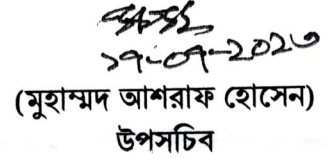 ১৭-০৭-২০২৩
(মুহাম্মদ আশরাফ হোসেন)
উপসচিব